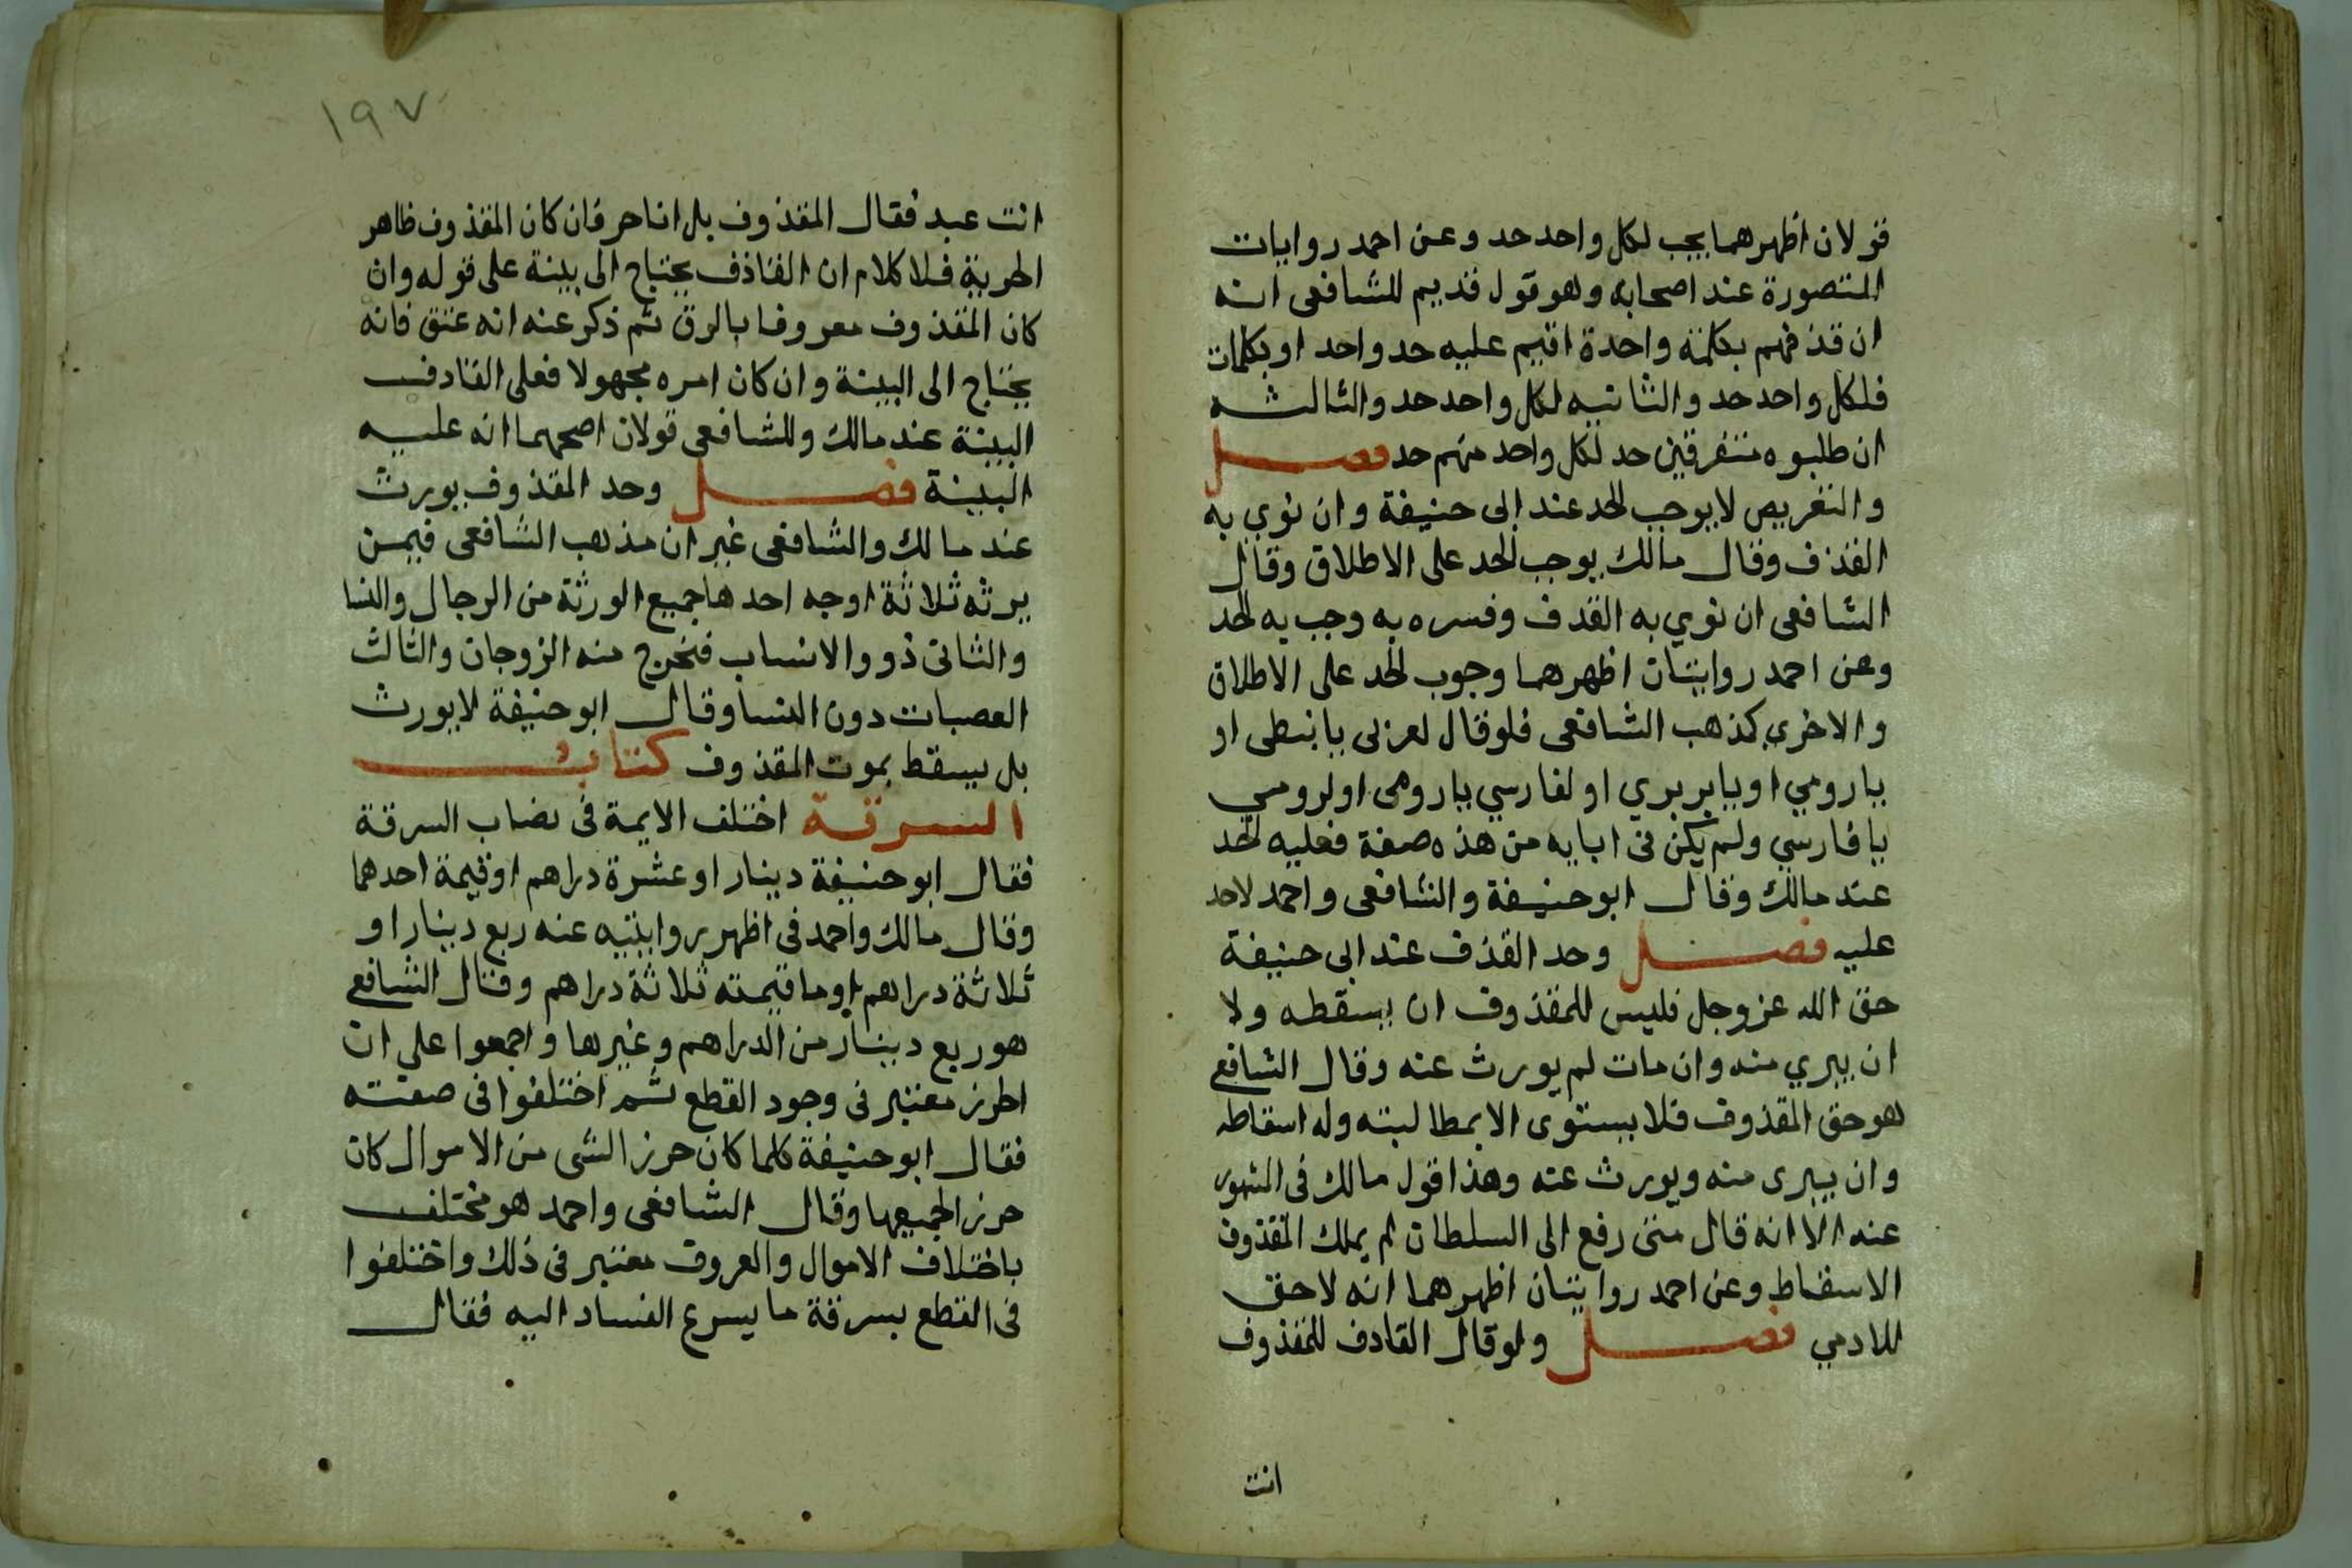 قولان اظهرهما يجب لكل واحد حد وعن احمد روايات
المنصورة عند اصحابه وهو قول قديم للشافعى انه
ان قذفهم بكلمة واحدة اقيم عليه حد واحد او بكلمات
فلكل واحد حد والثانيه لكل واحد حد والثالثه
ان طلبوه متفرقين حد لكل واحد منهم حد فصل
والتعريض لايوجب الحد عند ابى حنيفة وان نوي به
القذف وقال مالك يوجب الحد على الاطلاق وقال
الشافعى ان نوي به القدف وفسره به وجب به الحد
وعن احمد روايتان اظهرهما وجوب الحد على الاطلاق
والاخرى كمذهب الشافعى فلو قال لعربى يا نبطى او
يا رومي او يا بربري او لفارسي يا رومى او لرومي
يا فارسي ولم يكن فى ابايه من هذه صفة فعليه الحد
عند مالك وقال ابو حنيفة والشافعى واحمد لا حد
عليه فصل وحد القذف عند ابى حنيفة
حق الله عز وجل فليس للمقذوف ان يسقطه ولا
ان يبري منه وان مات لم يورث عنه وقال الشافعي
هو حق المقذوف فلا يستوى الا بمطالبته وله اسقاطه
وان يبرى منه ويورث عنه وهذا قول مالك فى المشهور
عنه الا انه قال متى رفع الى السلطان لم يملك المقذوف
الاسقاط وعن احمد روايتان اظهرهما انه لا حق
للادمي فصل ولو قال القادف للمقذوف
انت
١٩٧
انت عبد فقال المقذوف بل انا حر فان كان المقذوف ظاهر
الحرية فلا كلام ان القاذف يحتاج الى بينة على قوله وان
كان المقذوف معروفا بالرق ثم ذكر عنه انه عتق فانه
يحتاج الى البينة وان كان امره مجهولا فعلى القادف
البينة عند مالك وللشافعى قولان اصحهما انه عليه
البينة فصل وحد المقذوف يورث
عند مالك والشافعى غير ان مذهب الشافعى فيمن
يرثه ثلاثة اوجه احدها جميع الورثة من الرجال والنسا
والثانى ذووا الانساب فيخرج منه الزوجان والثالث
العصبات دون النسا وقال ابو حنيفة لا يورث
بل يسقط بموت المقذوف كتاب
السرقة اختلف الايمة فى نصاب السرقة
فقال ابو حنيفة دينار او عشرة دراهم او قيمة احدهما
وقال مالك واحمد فى اظهر روايتيه عنه ربع دينار او
ثلاثة دراهم او ما قيمته ثلاثة دراهم وقال الشافعي
هو ربع دينار من الدراهم وغيرها واجمعوا على ان
الحرز معتبر فى وجود القطع ثم اختلفوا فى صفته
فقال ابو حنيفة كلما كان حرز الشى من الاموال كان
حرز الجميعها وقال الشافعى واحمد هو مختلف
باختلاف الاموال والعروف معتبر فى ذلك واختلفوا
فى القطع بسرقة ما يسرع الفساد اليه فقال